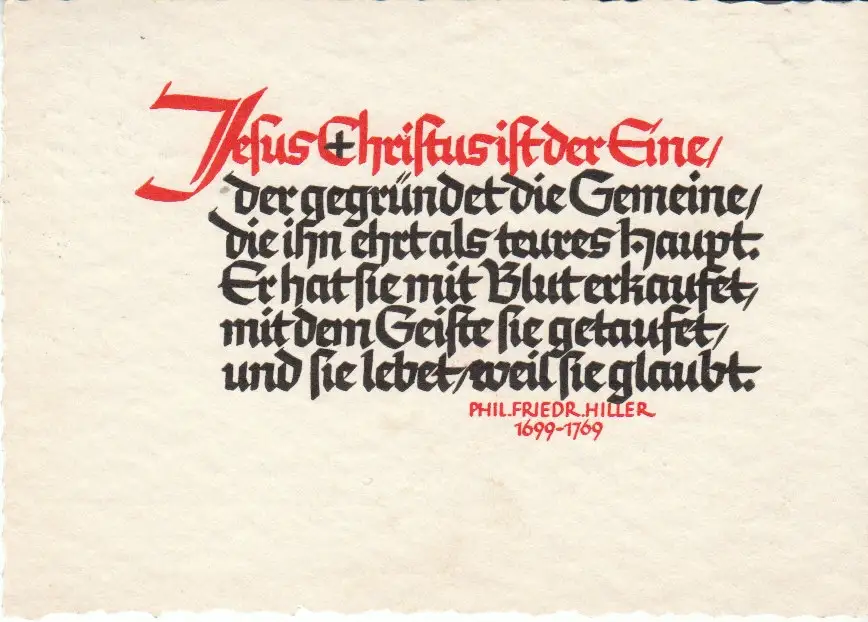 Jesus Christus ist der Eine/
der gegründet die Gemeine/
die ihn ehrt als teures Haupt.
Er hat sie mit Blut erkaufet,
mit dem Geiste sie getaufet,
und sie lebet, weil sie glaubt.
PHIL. FRIEDR. HILLER
1699-1769